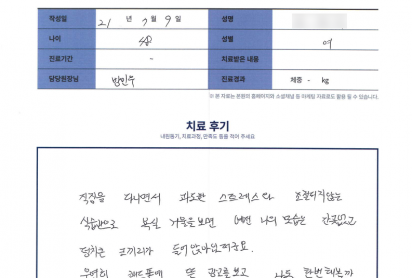 작성일 21 년 7 월 9 일 성명
나이 48 성별 여
진료기간 - 치료받은 내용
담당원장님 방민우 진료경과 체중 - kg
※ 본 자료는 본원의 홈페이지와 소셜채널 등 마케팅 자료로도 활용 될 수 있습니다.
치료 후기
내원동기, 치료과정, 만족도 등을 적어 주세요.
직장을 다니면서 과도한 스트레스와 조절되지않는
식습관으로 복싱 거울을 보면 예쁜 나의 모습은 간곳없고
덩치큰 코끼리가 들어앉아있더구요.
우연히 페드롬에 뜬 광고를 보고 나도 한번해볼까